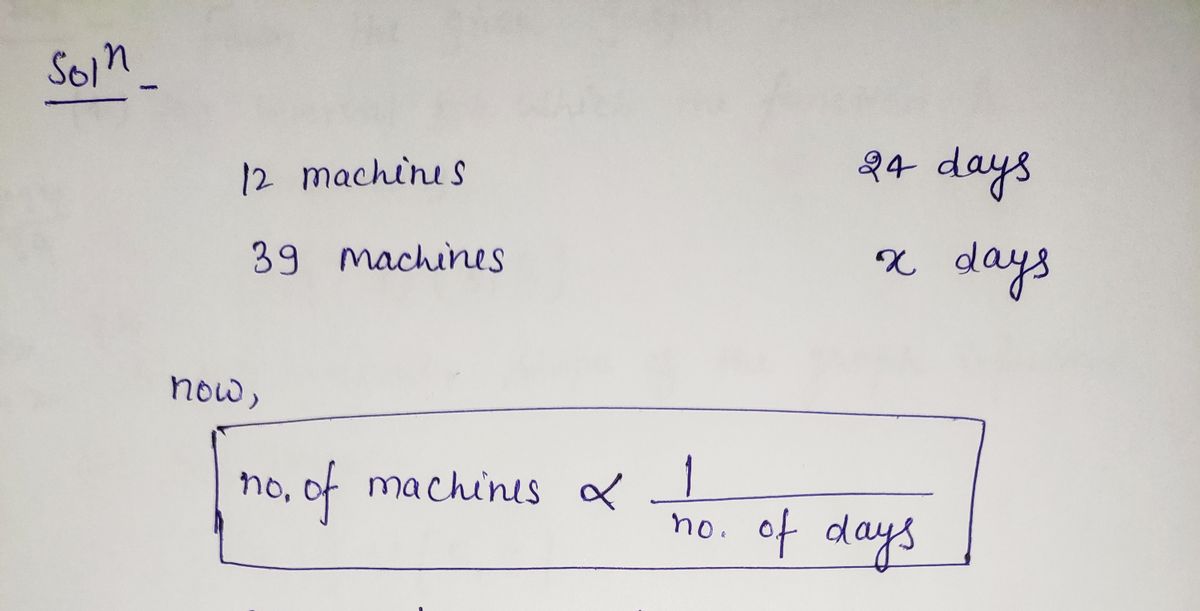 Solⁿ -
12 machines 24 days
39 machines x days
now,
no. of machines ∝ 1
no. of days